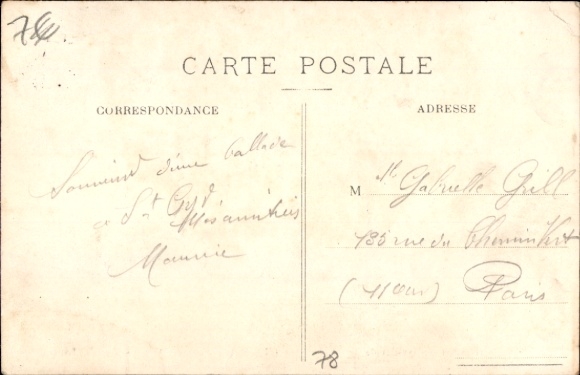 78
CARTE POSTALE
CORRESPONDANCE
ADRESSE
Souvenir d'une ballade
a St Cyr
Mes amitiés
Maurice
M lle Gabrielle Grill
135 rue du Chemin Vert
(11eme) Paris
78